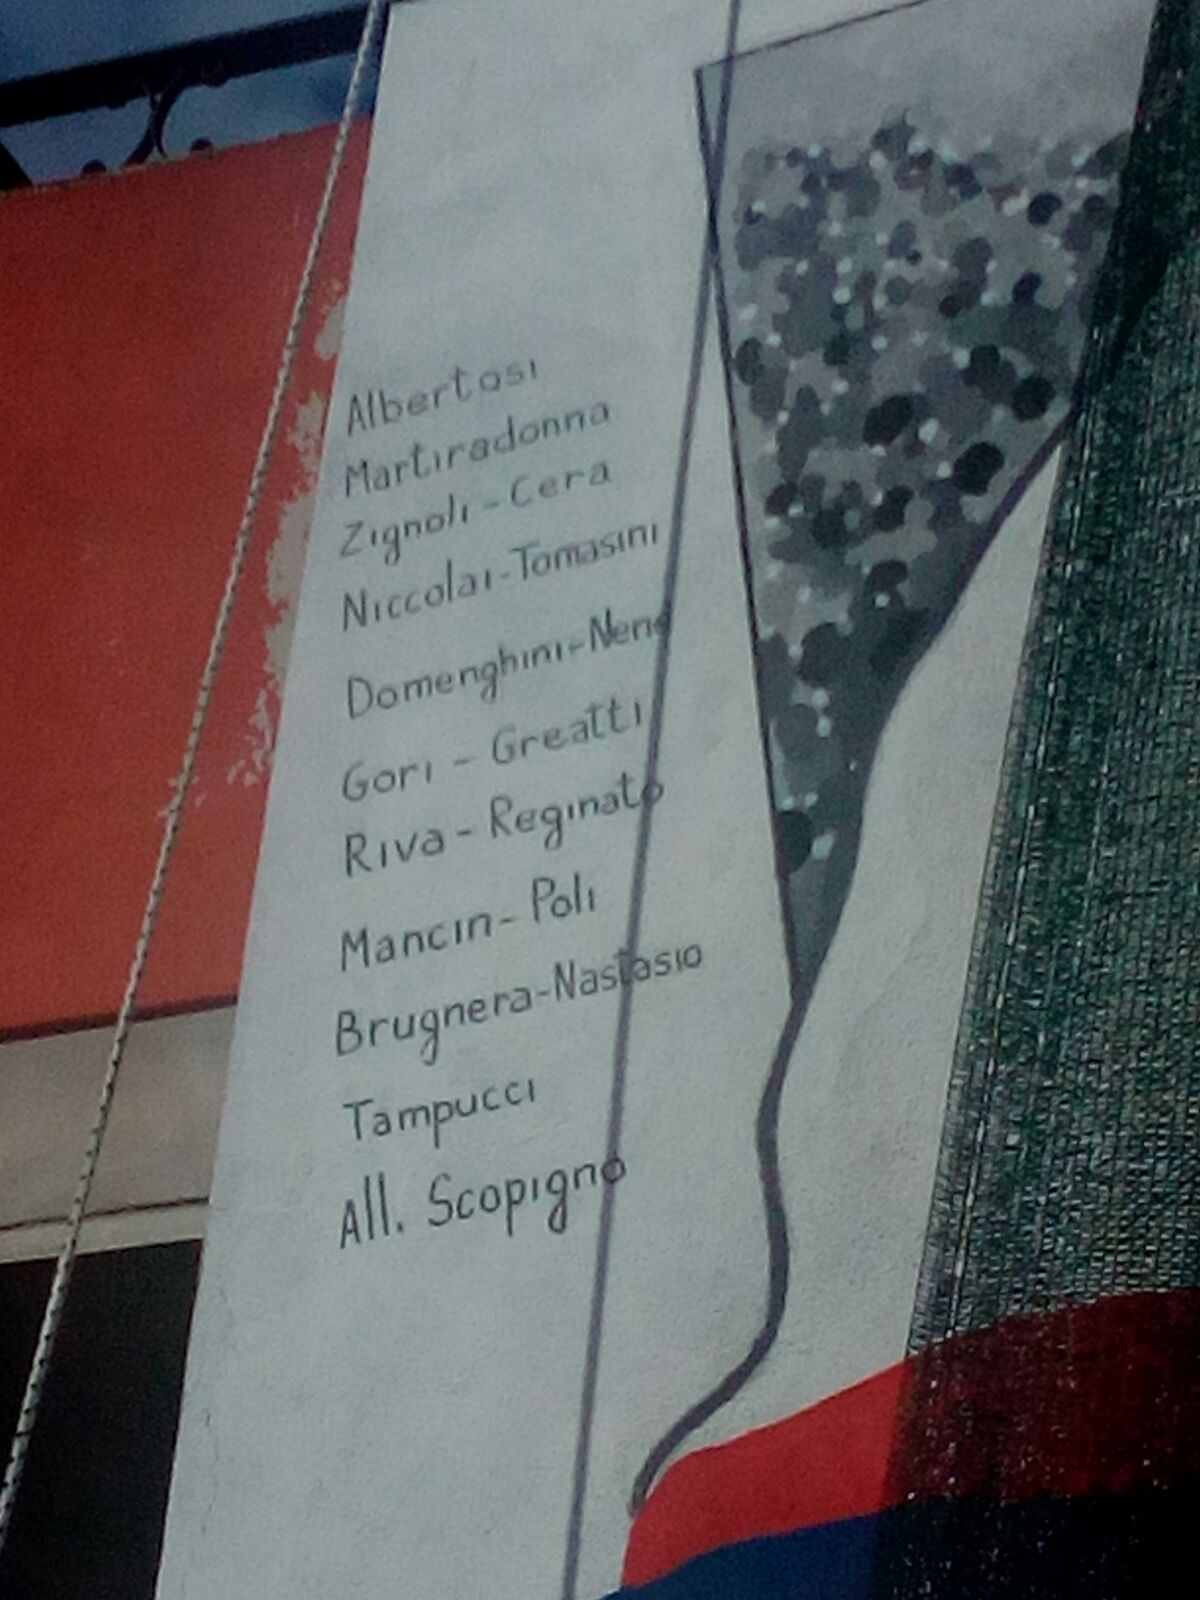 Albertosi
Martiradonna
Zignoli - Cera
Niccolai - Tomasini
Domenghini - Nenè
Gori - Greatti
Riva - Reginato
Mancin - Poli
Brugnera - Nastasio
Tampucci
All. Scopigno